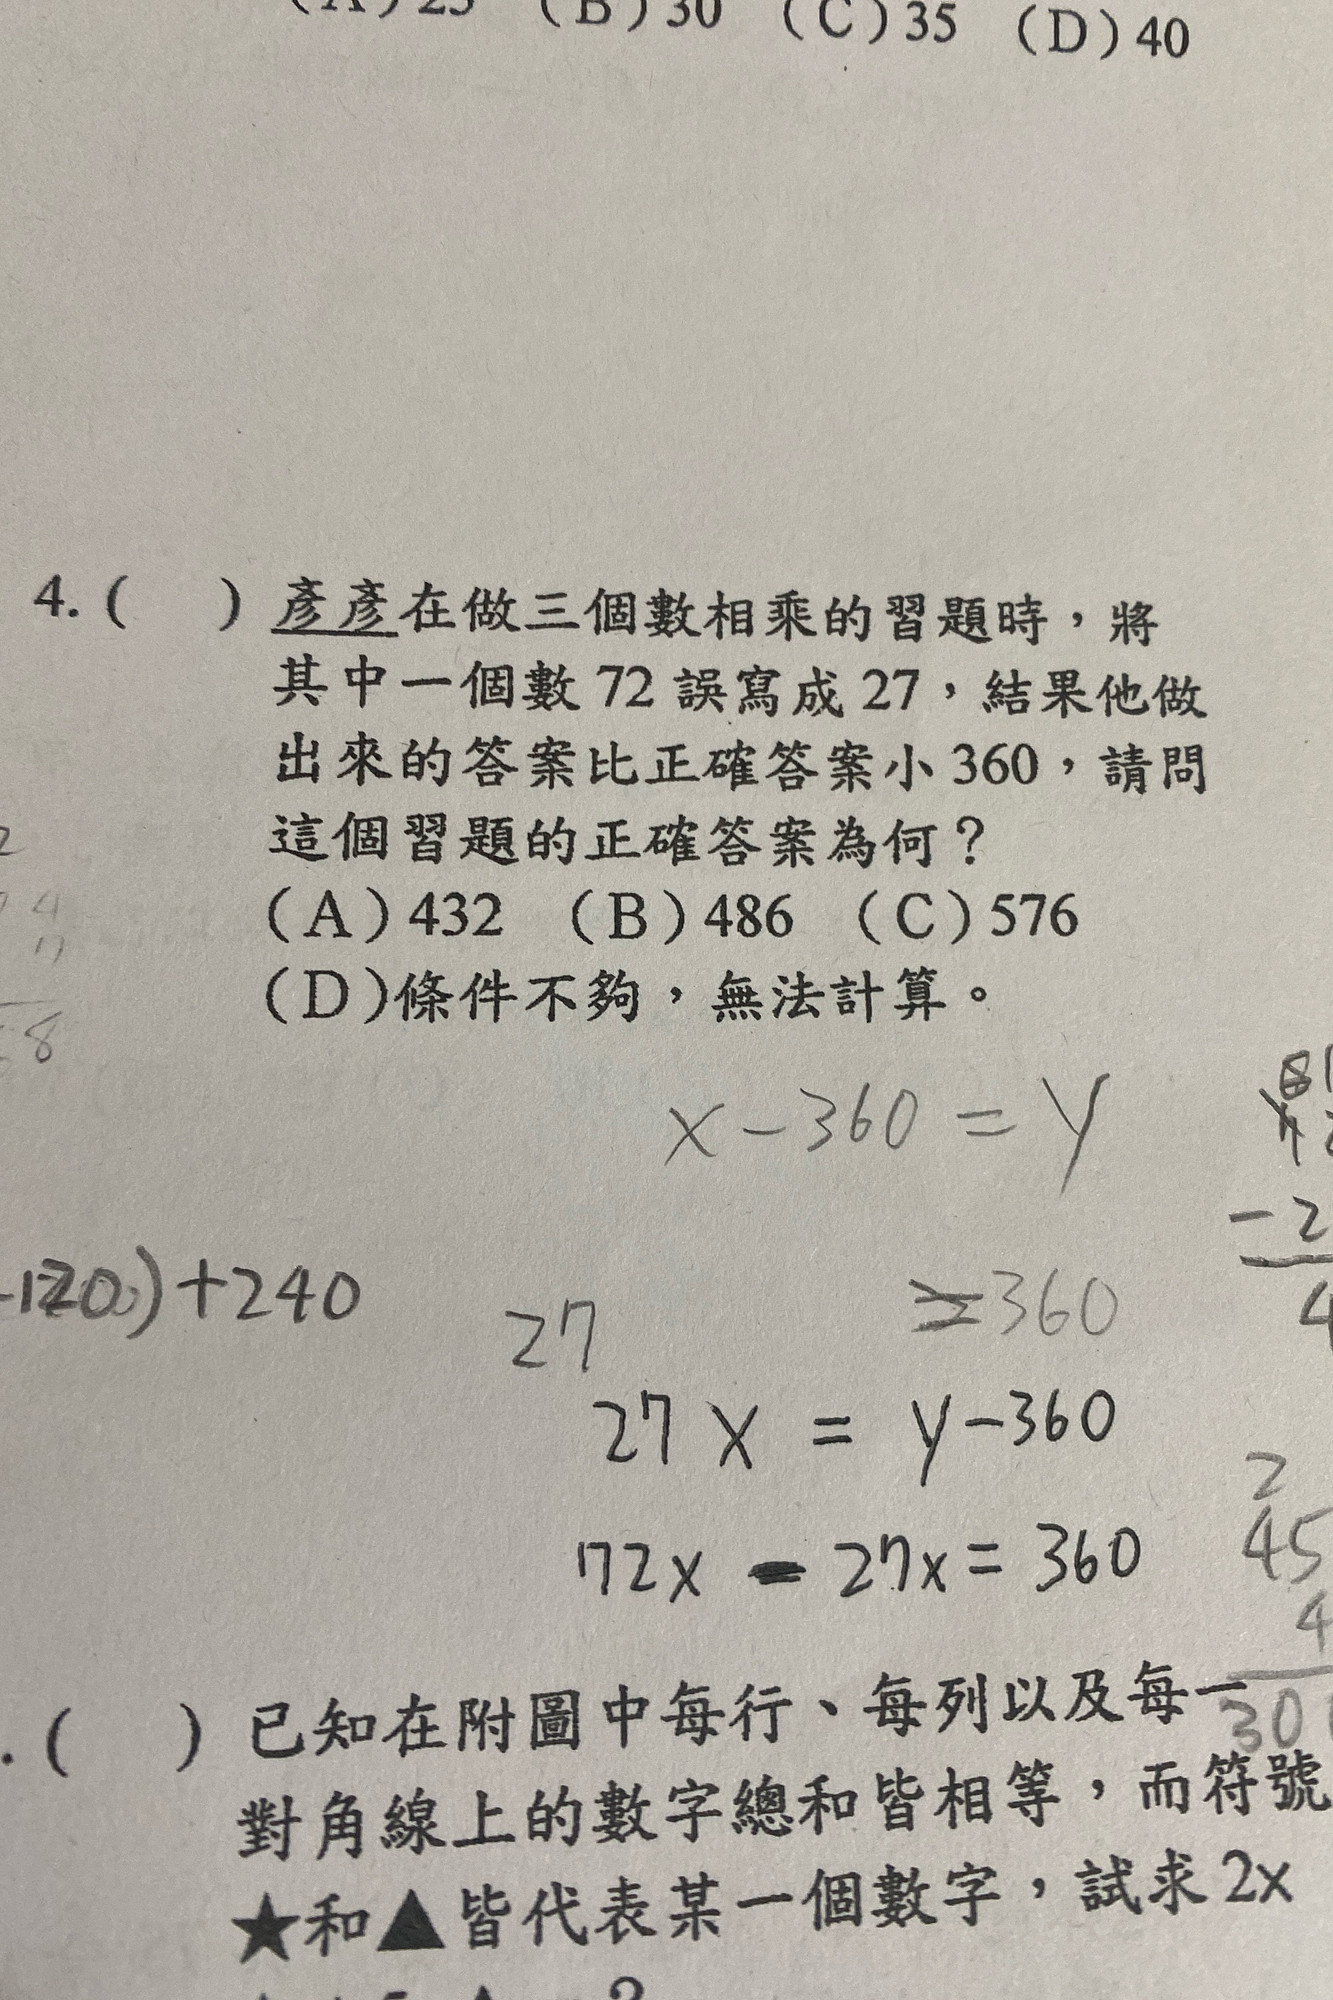 (A)25 (B)30 (C)35 (D)40
4.( ) 彥彥在做三個數相乘的習題時，將
其中一個數 72 誤寫成 27，結果他做
出來的答案比正確答案小 360，請問
這個習題的正確答案為何？
(A)432 (B)486 (C)576
(D)條件不夠，無法計算。
x-360=y
-120)+240
27 =360
27x = y-360
72x - 27x = 360
.( ) 已知在附圖中每行、每列以及每一
對角線上的數字總和皆相等，而符號
★和▲皆代表某一個數字，試求 2x